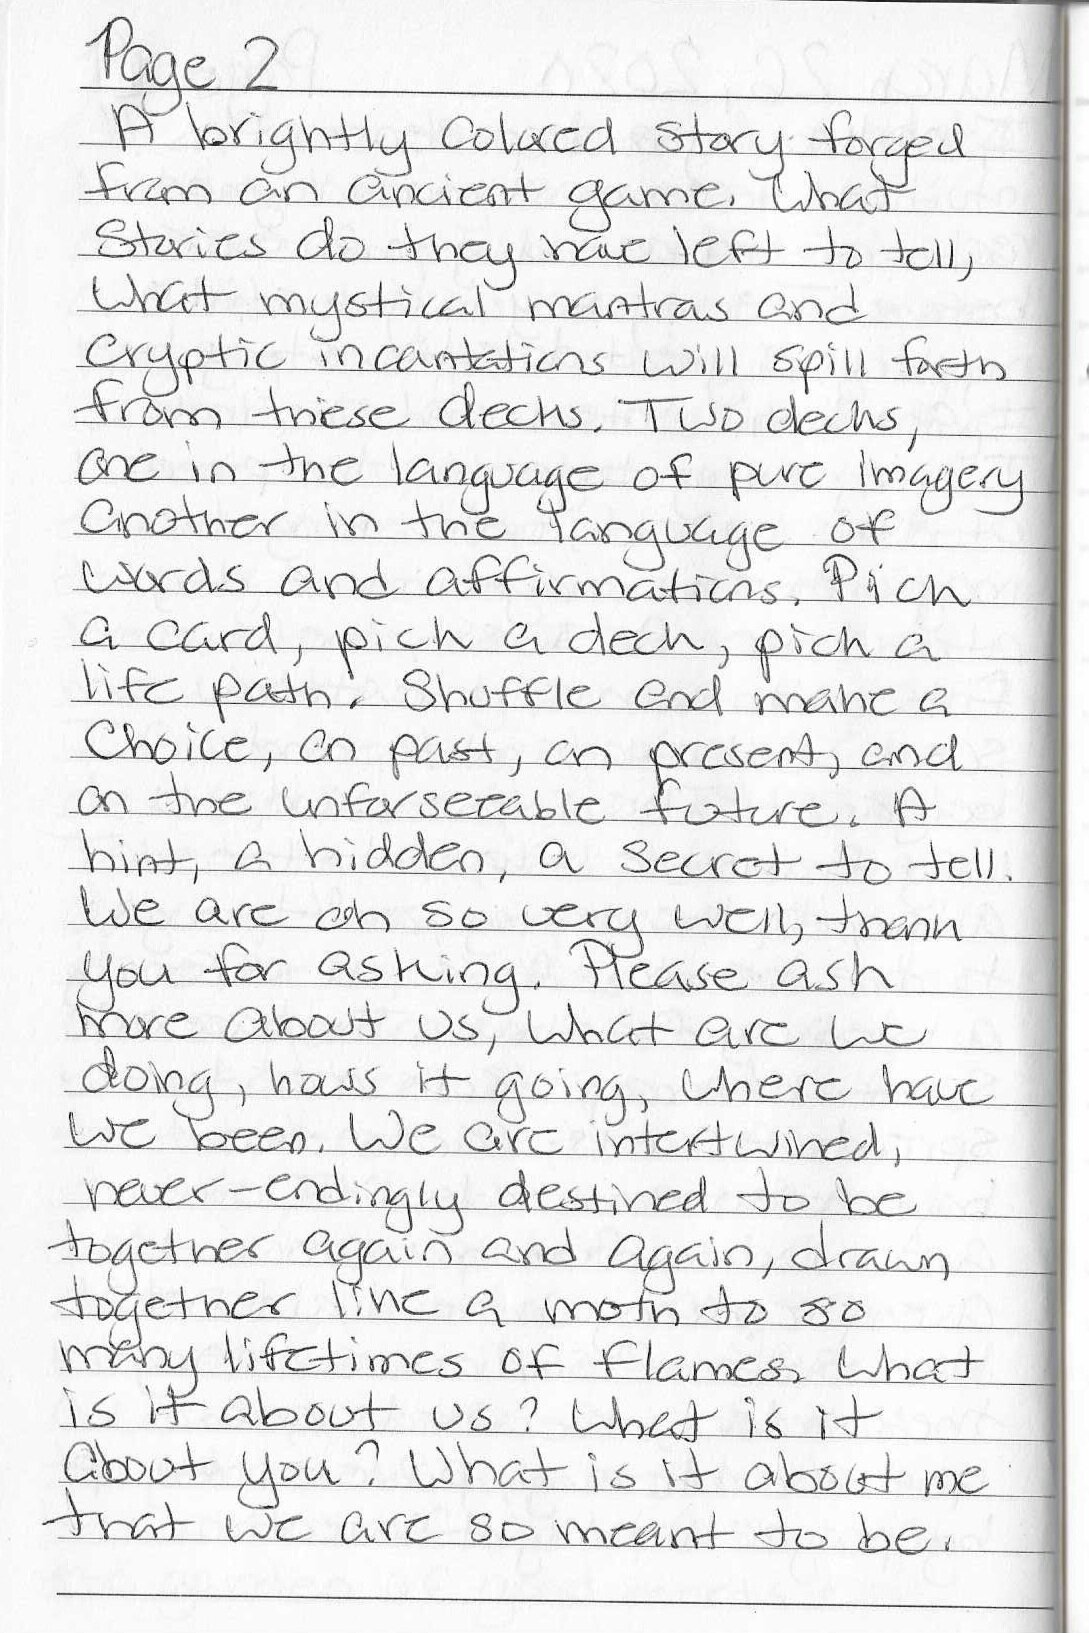 Page 2
A brightly colored story forged
from an ancient game. What
stories do they have left to tell,
what mystical mantras and
cryptic incantations will spill forth
from these decks. Two decks,
one in the language of pure imagery
another in the language of
words and affirmations. Pick
a card, pick a deck, pick a
life path. Shuffle and make a
choice, on past, on present, and
on the unforseeable future. A
hint, a hidden, a secret to tell.
We are oh so very well, thank
you for asking. Please ask
more about us, what are we
doing, hows it going, where have
we been. We are intertwined,
never-endingly destined to be
together again and again, drawn
together like a moth to so
many lifetimes of flames. What
is it about us? What is it
about you? What is it about me
that we are so meant to be.